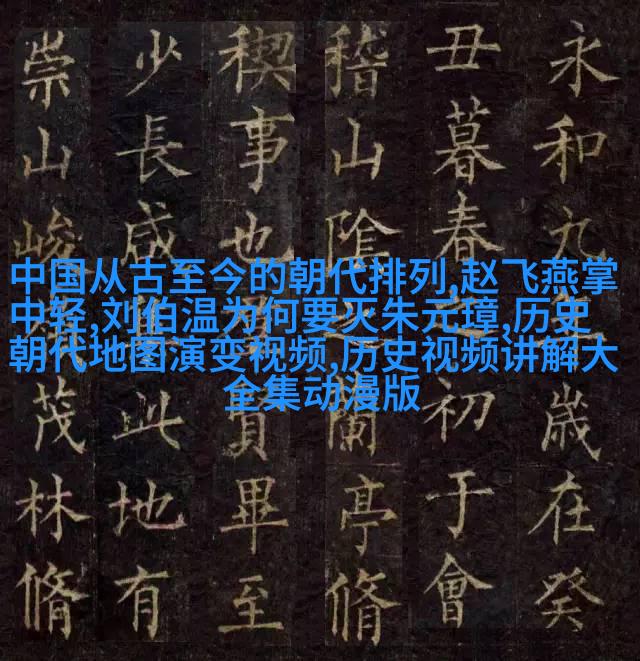 永和九年歲在癸
丑暮春之初于會
稽山陰之蘭亭脩
稧事也賢畢至
少長咸此地有
崇山峻茂林脩
中国从古至今的朝代排列,赵飞燕掌
中轻,刘伯温为何要灭朱元璋,历史
朝代地图演变视频,历史视频讲解大
全集动漫版